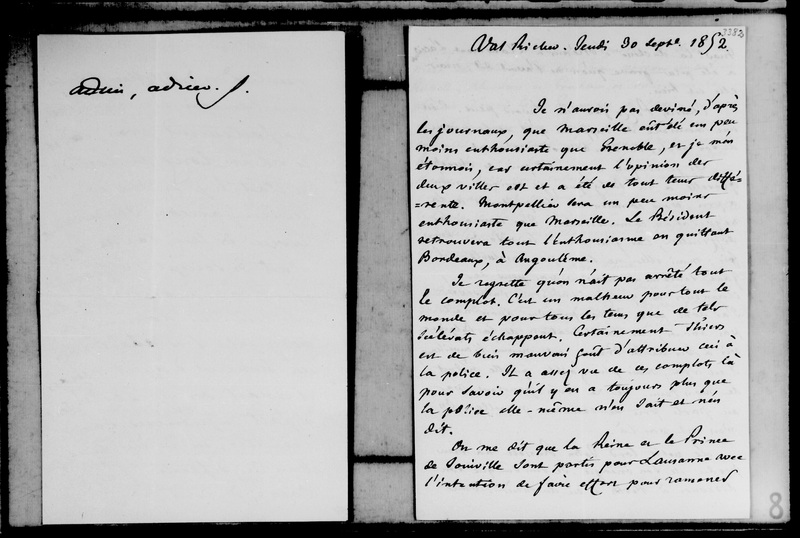 adieu, adieu. G.
3382
Val Richer. Jeudi 30 Septe. 1852.
Je n'aurois pas deviné, d'après
les journaux, que Marseille eût été un peu
moins enthousiaste que Grenoble, et je m'en
étonnois, car certainement l'opinion des
deux villes est et a été de tout tems diffé-
=rente. Montpellier sera un peu moins
enthousiaste que Marseille. Le Président
retrouvera tout l'enthousiasme en quittant
Bordeaux, à Angoulême.
Je regrette qu'on n'ait pas arrêté tout
le complot. C'est un malheur pour tout le
monde et pour tous les tems que de tels
scélérats échappent. Certainement Thiers
est de bien mauvais goût d'attribuer ceci à
la police. Il a assez vu de ces complots là
pour savoir qu'il y en a toujours plus que
la police elle-même n'en sait et n'en
dit.
On me dit que la Reine et le Prince
de Joinville sont partis pour Lausanne avec
l'intention de faire effort pour ramener
8